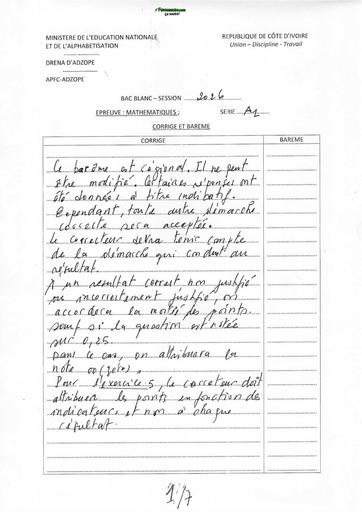 MINISTERE DE L'EDUCATION NATIONALE
ET DE L'ALPHABETISATION
DRENA D'ADZOPE
APFC-ADZOPE
REPUBLIQUE DE CÔTE D'IVOIRE
Union – Discipline - Travail
BAC BLANC – SESSION 2026
EPREUVE : MATHEMATIQUES ; SERIE A1
CORRIGE ET BAREME
CORRIGE BAREME
Ce barème est régional. Il ne peut
être modifié. Certaines réponses ont
été données à titre indicatif.
Cependant, toute autre démarche
correcte sera acceptée.
Le correcteur devra tenir compte
de la démarche qui conduit au
résultat.
A un résultat correct non justifié
ou incorrectement justifié, on
accordera la moitié des points.
sauf si la question est notée
sur 0,25.
Dans ce cas, on attribuera la
note 00 (zéro).
Pour l'exercice 5, le correcteur doit
attribuer les points en fonction des
indicateurs et non à chaque
résultat.
1/7